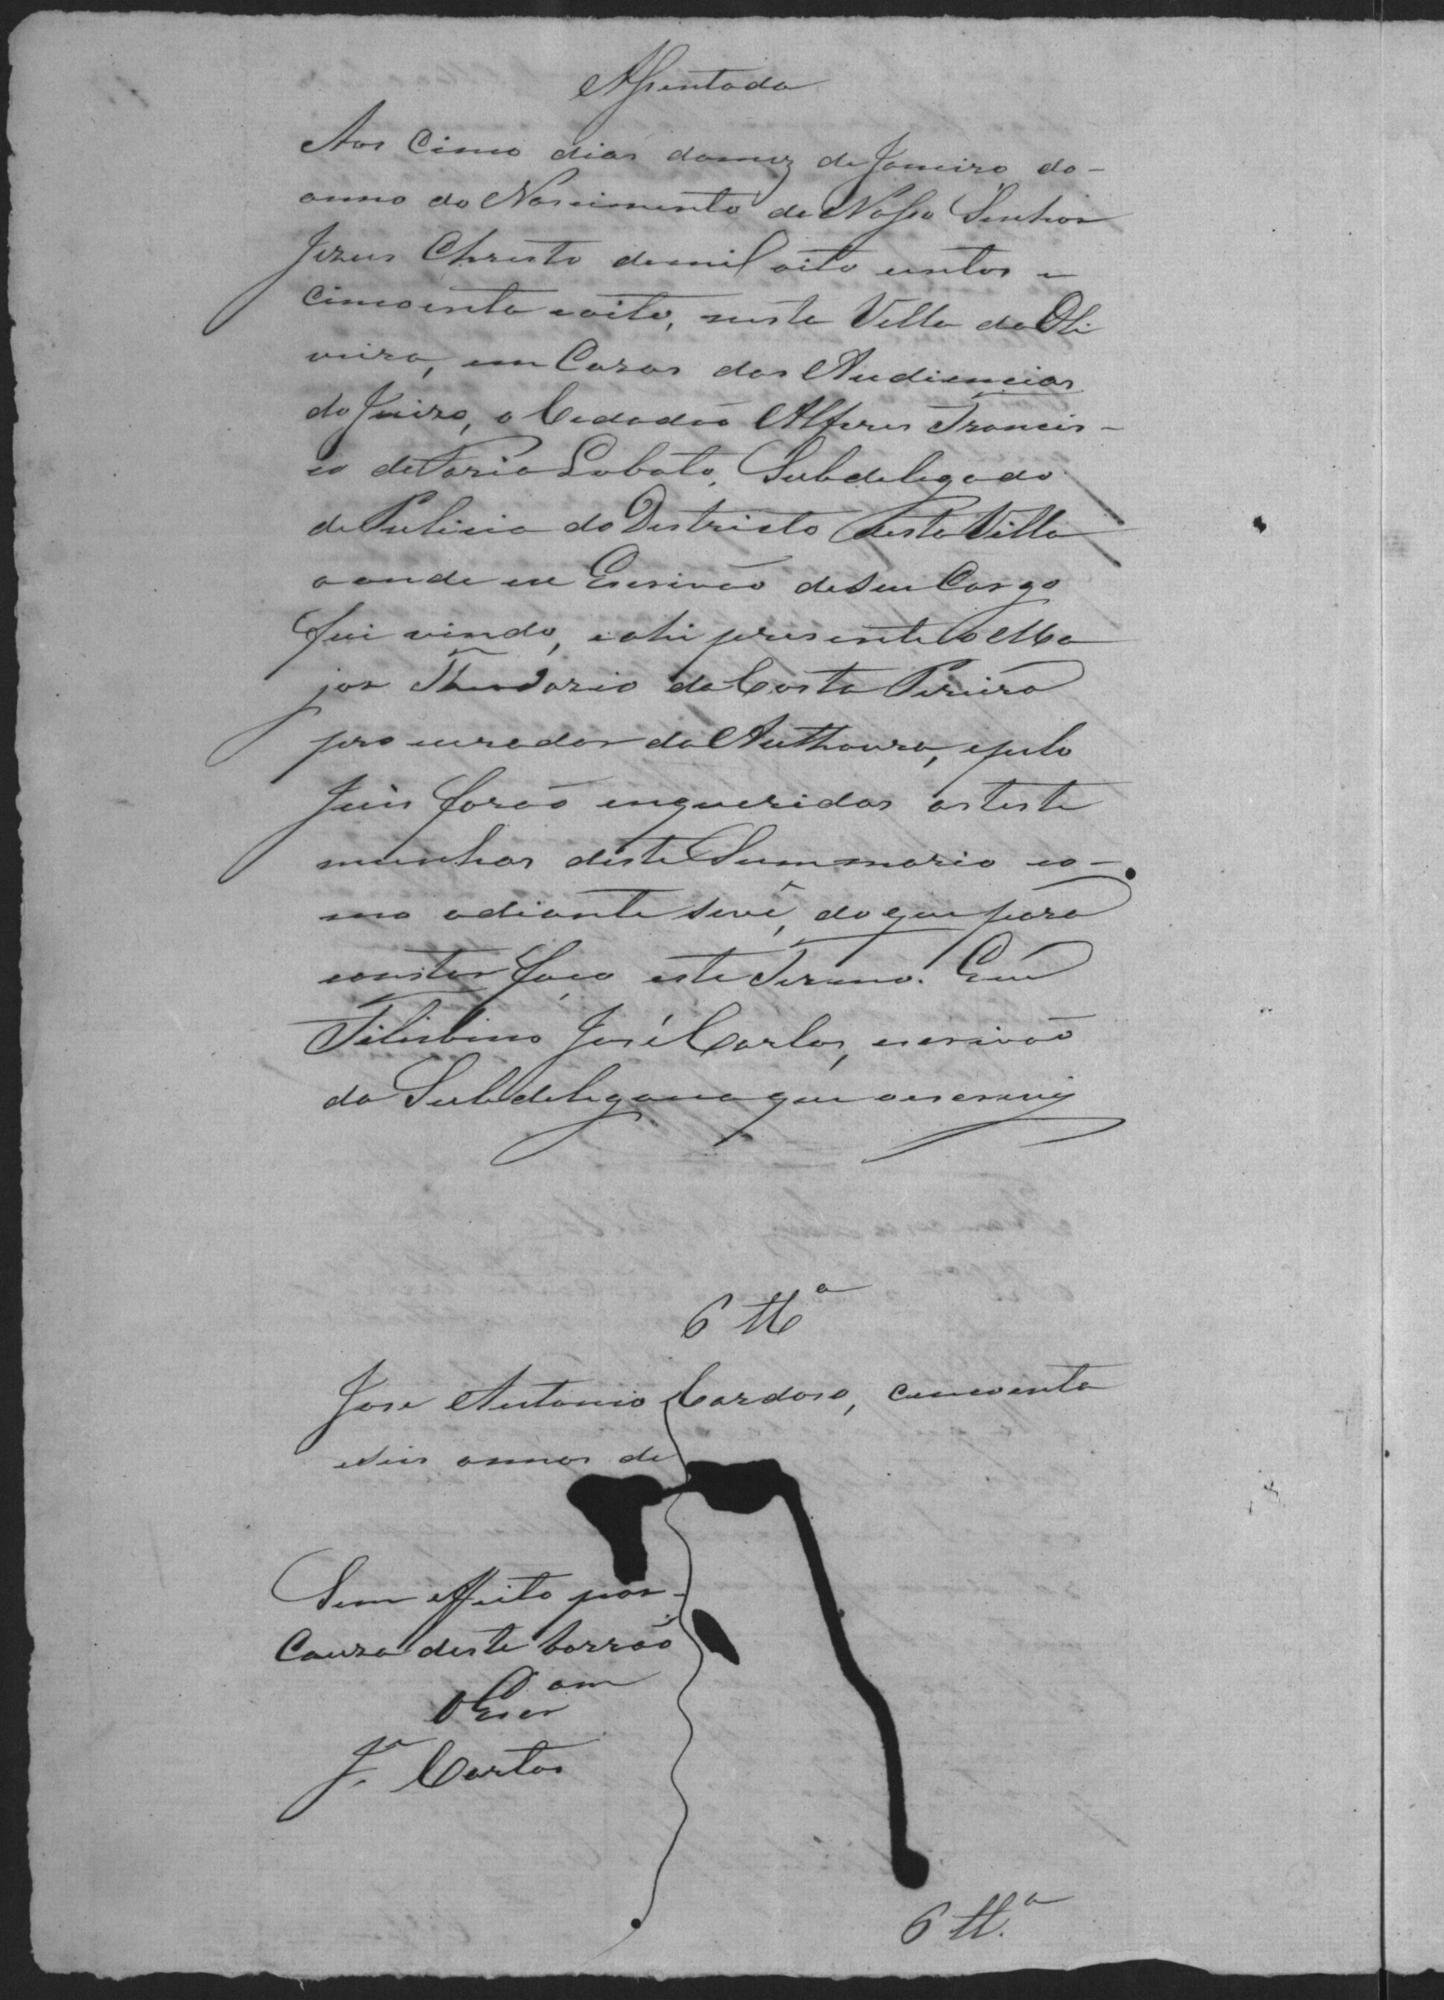 Assentada
Aos Cinco dias domez de Janeiro do
anno do Nascimento de Nosso Senhor
Jezus Christo demil oito centos e
cincoenta eoito, nesta Villa da Oli
veira, em Cazas das Audiencias
do Juizo, o Cidadão Alferes Francis-
co de Faria Lobato, Subdelegado
de Policia do Destricto desta Villa
aonde eu Escrivão deseu Cargo
fui vindo, eahi presente o Ma
jor Theodozio da Costa Pereira
procurador da Authoura, epelo
Juis forão enqueridas asteste
munhas deste Summario co-
mo adiante sevê, do que para
constar faço este Termo. Eu
José Carlos, escrivão
da Subdelegacia que oescrevy
6 Tta
Jose Antonio Cardoso, cincoenta
eseis annos de
Sem effeito por
Cauza deste borrão
O Escram
Je Carlos
6 Tt.a